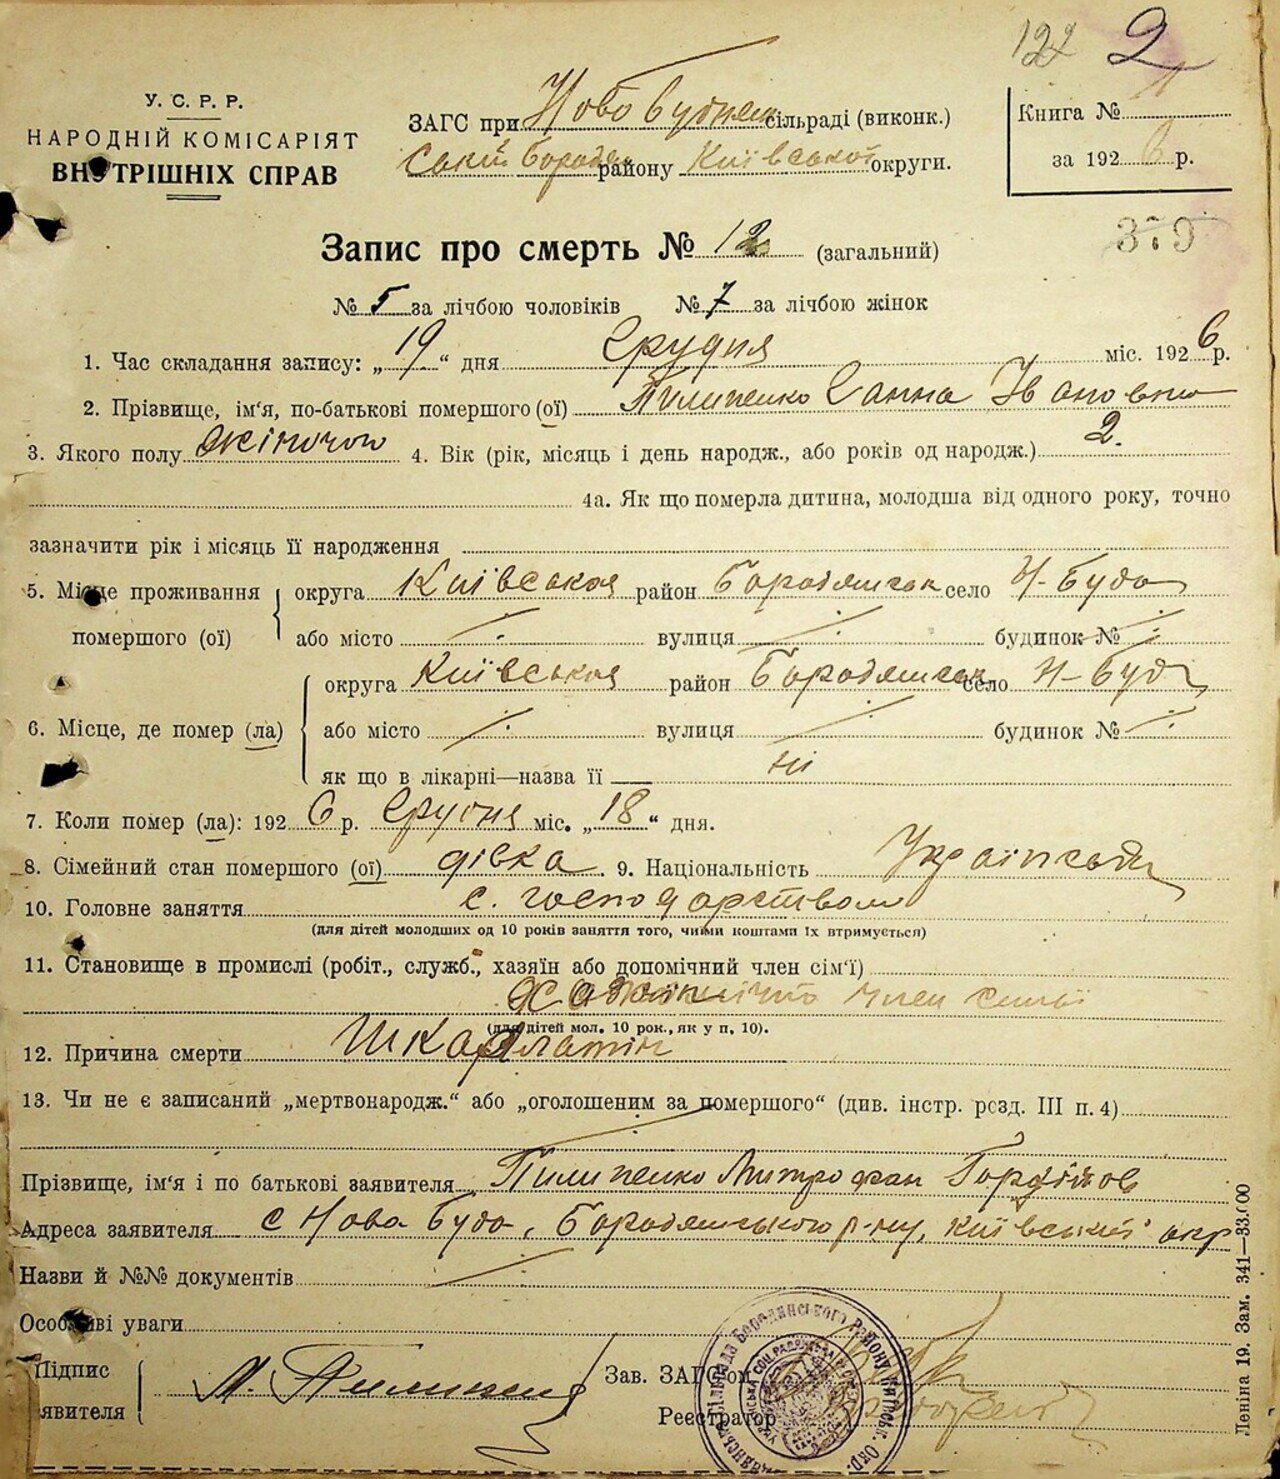 122 2
У. С. Р. Р.
НАРОДНІЙ КОМІСАРІЯТ
ВНУТРІШНІХ СПРАВ
ЗАГС при Ново Будян сільраді (виконк.)
ській Бородян району Київської округи.
Книга №
за 1926 р.
379
Запис про смерть № 12 (загальний)
№ 5 за лічбою чоловіків № 7 за лічбою жінок
1. Час складання запису: „19“ дня Грудня міс. 1926 р.
2. Прізвище, ім‘я, по-батькові помершого (ої) Пилипенко Ганна Івановна
3. Якого полу жіночого 4. Вік (рік, місяць і день народж., або років од народж.) 2.
4а. Як що померла дитина, молодша від одного року, точно
зазначити рік і місяць її народження
5. Місце проживання помершого (ої) { округа Київська район Бородянськ село Н-Буда
або місто ⁒ вулиця ⁒ будинок № ⁒
6. Місце, де помер (ла) { округа Київська район Бородянськ село Н-Буда
або місто ⁒ вулиця ⁒ будинок № ⁒
як що в лікарні—назва її ні
7. Коли помер (ла): 1926 р. Грудня міс. „18“ дня.
8. Сімейний стан помершого (ої) дівка 9. Національність Українська
10. Головне заняття с. господарством
(для дітей молодших од 10 років заняття того, чиїми коштами їх втримується)
11. Становище в промислі (робіт., служб., хазяїн або допомічний член сім‘ї)
член сим'ї
(для дітей мол. 10 рок., як у п. 10).
12. Причина смерти Шкарлатін
13. Чи не є записаний „мертвонародж.“ або „оголошеним за помершого“ (див. інстр. розд. III п. 4)
Прізвище, ім‘я і по батькові заявителя Пилипенко Митрофан Гордійов
Адреса заявителя с Нова Буда, Бородянського р-ну, Київської окр
Назви й №№ документів
Особливі уваги
Підпис заявителя } М. Пилипенко
Зав. ЗАГС‘ом
Реєстратор
Леніна 19. Зам. 341—33.000